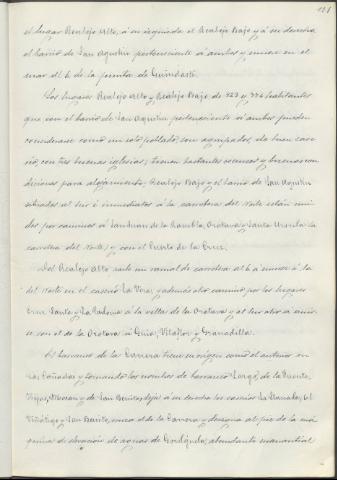 131
el lugar Realejo Alto, á su izquierda el Realejo Bajo y á su derecha
el barrio de San Agustin perteneciente á ambos y muere en el
mar al O de la punta de Guindaste.
Los lugares Realejo Alto y Realejo Bajo, de 923 y 776 habitantes
que con el barrio de San Agustin perteneciente á ambos pueden
considerarse como un solo poblado, son agrupados, de buen case
rio, con tres buenas iglesias; tienen bastantes recursos y buenas con
diciones para alojamiento; Realejo Bajo y el barrio de San Agustin
situados al sur é inmediatos á la carretera del Norte están uni
dos por caminos á San Juan de la Rambla, Orotava y Santa Ursula (la
carretera del Norte) y con el Puerto de la Cruz.
Del Realejo Alto, parte un ramal de carretera al O á unirse á la
del Norte en el caserio La Vera, y además otro camino por los lugares
Cruz Santa y La Perdoma á la villa de la Orotava y al Sur otro á unir
se con el de la Orotava á Guia, Vilaflor y Granadilla.
El barranco de la Carrera tiene su origen como el anterior en
Las Cañadas y tomando los nombres de barranco Largo, de la Fuente,
Hijas, Moreno y de San Benito, deja á su derecha los caserios La Llanada, el
Viñatigo y San Benito, cruza el de la Carrera y desagua al pie de la má
quina de elevación de aguas de Gordejuela, abundante manantial